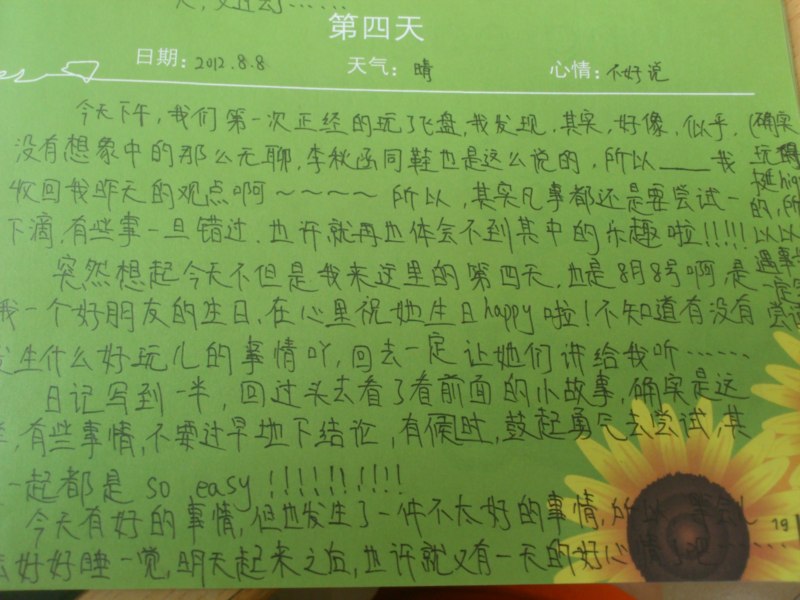 天,又过去了……
第四天
日期: 2012.8.8 天气: 晴 心情: 不好说
今天下午,我们第一次正经的玩了飞盘,我发现,其实,好像,似乎,
没有想象中的那么无聊,李秋函同鞋也是这么说的,所以____我
收回我昨天的观点啊~~~~~所以,其实凡事都还是要尝试一
下滴,有些事一旦错过,也许就再也体会不到其中的乐趣啦!!!!!
(确实
玩得
挺hig
的,所
以以
遇事
一定
尝试
突然想起今天不但是我来这里的第四天,也是8月8号啊,是
我一个好朋友的生日,在心里祝她生日happy啦!不知道有没有
发生什么好玩儿的事情吖,回去一定让她们讲给我听……
日记写到一半,回过头去看了看前面的小故事,确实是这
样,有些事情,不要过早地下结论,有候时,鼓起勇气去尝试,其
一起都是 so easy!!!!!!!!!!
今天有好的事情,但也发生了一件不太好的事情,所以
好好睡一觉,明天起来之后,也许就又有一天的好心情了吧……
19